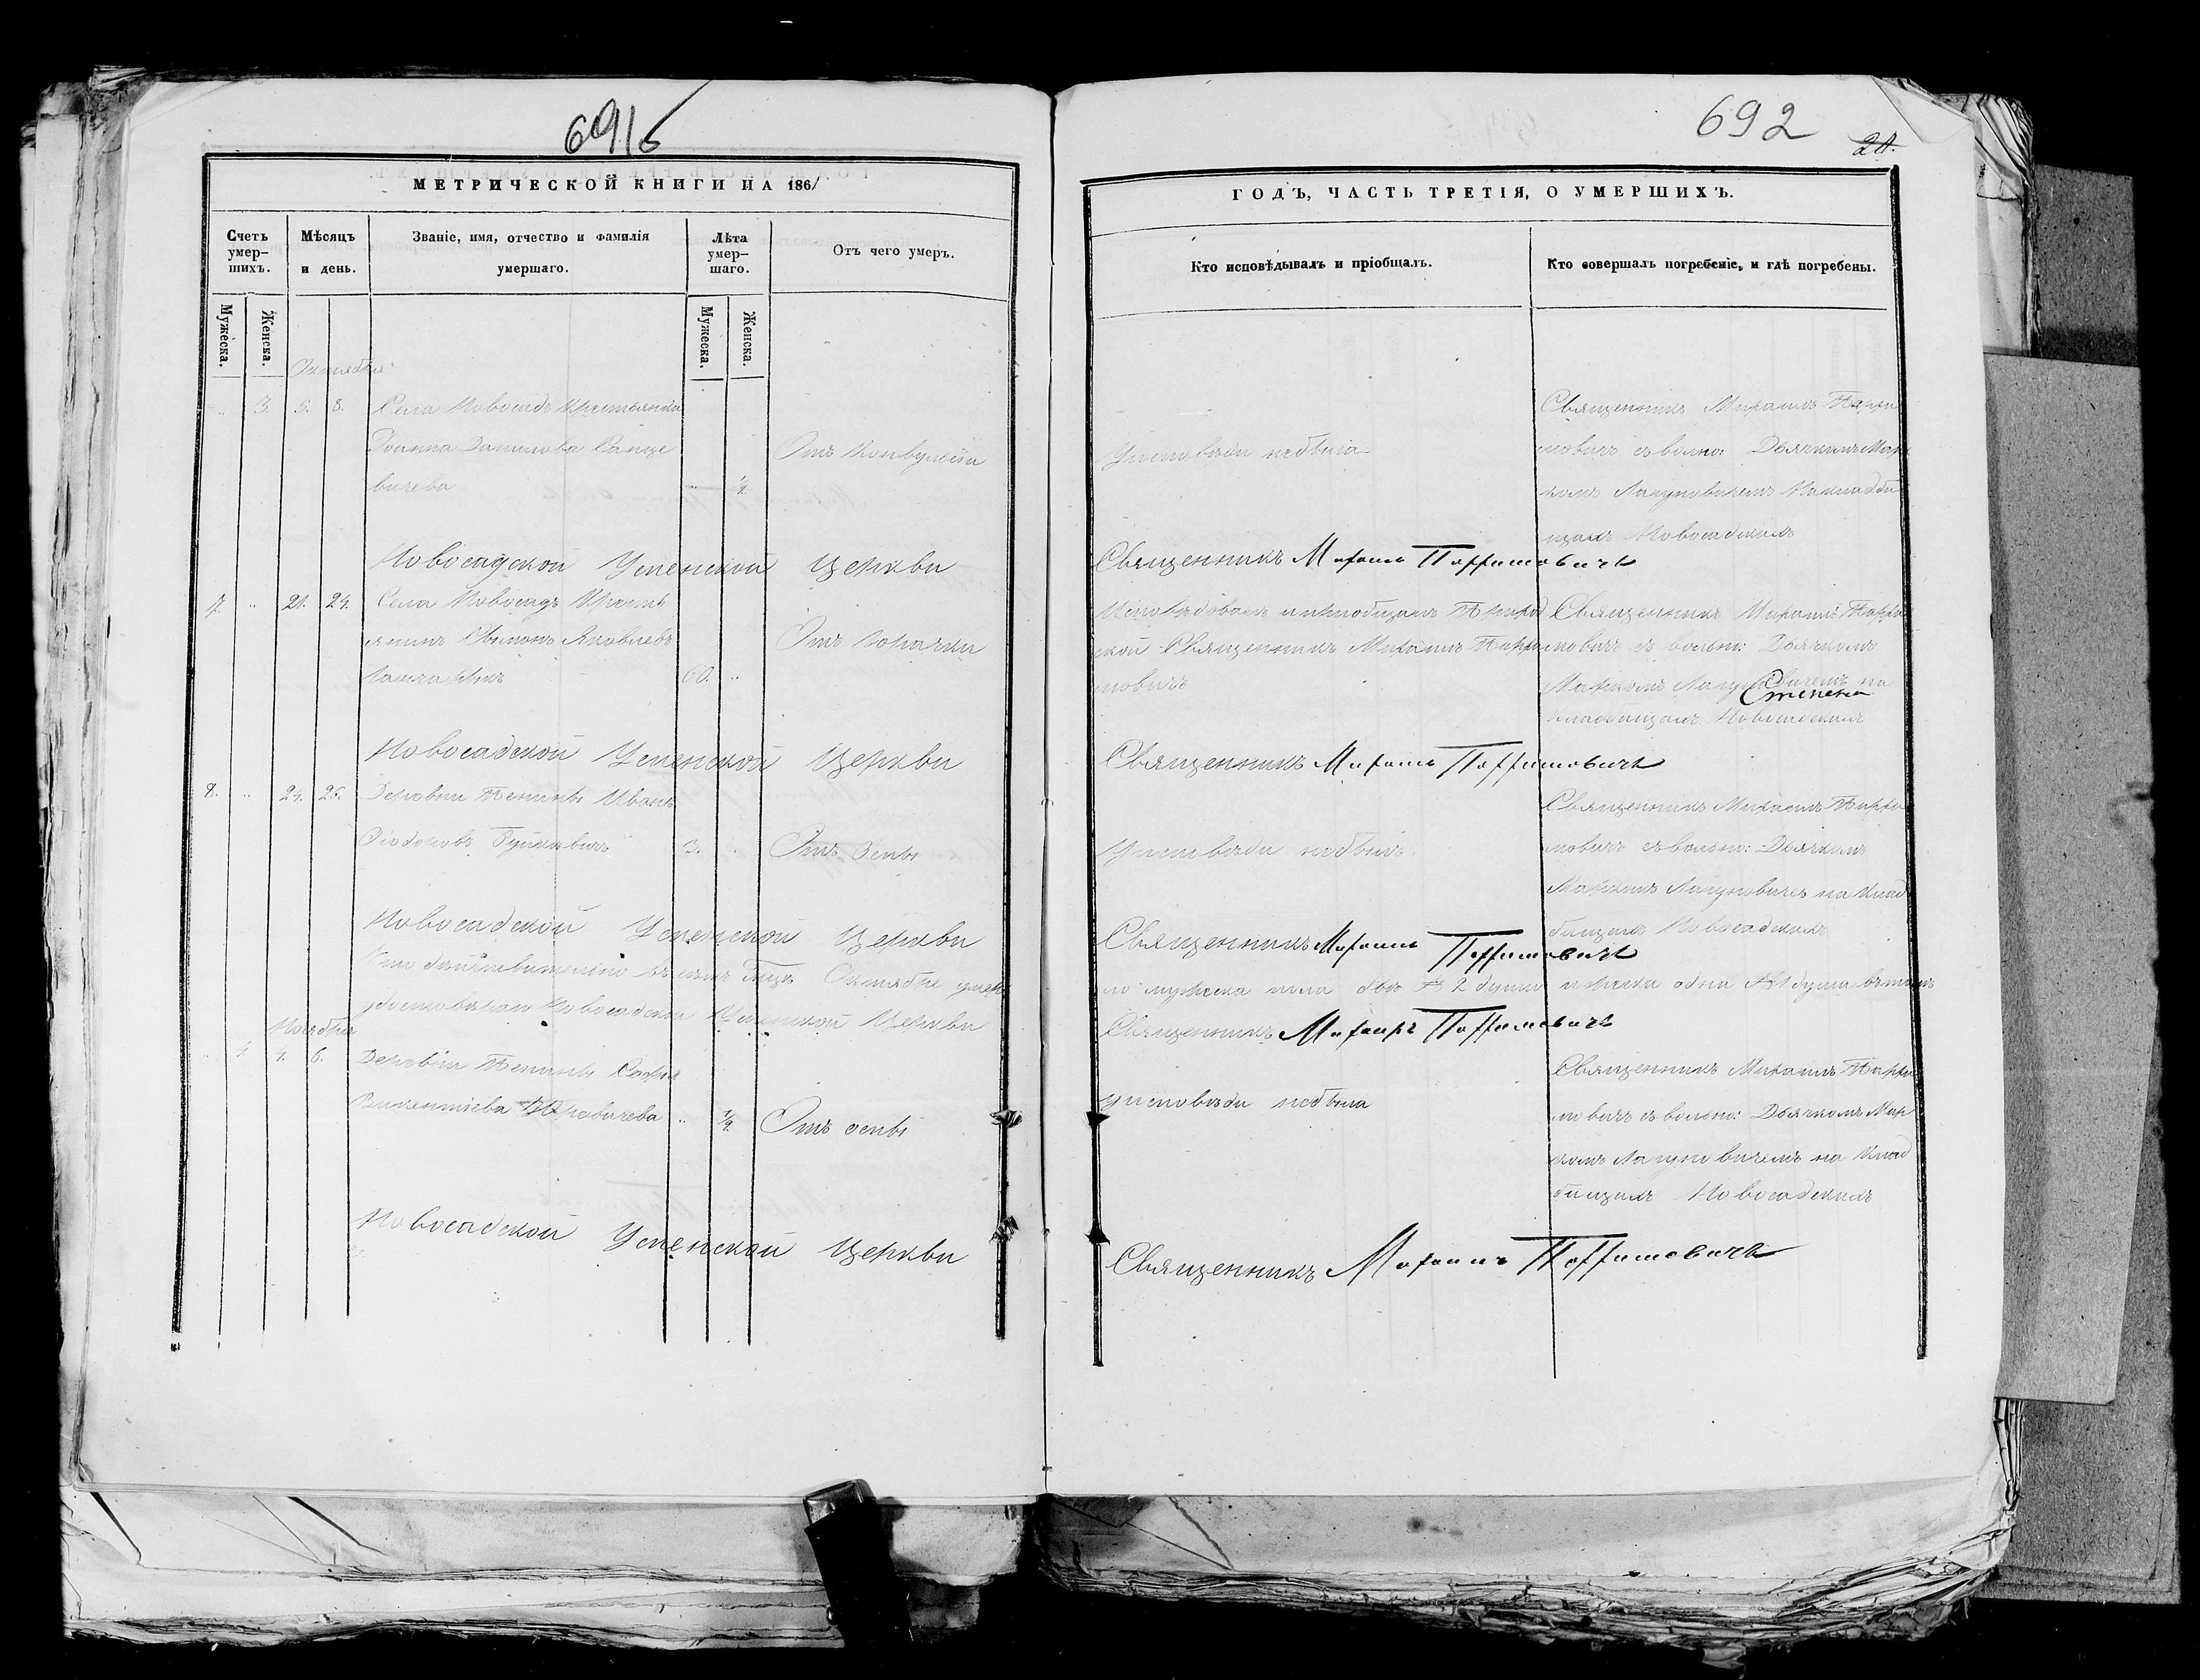 691б
МЕТРИЧЕСКОЙ КНИГИ НА 1861
Счетъ умер-шихъ.
Мѣсяцъ и день.
Званіе, имя, отчество и фамилія умершаго.
Лѣта умер-шаго.
Отъ чего умеръ.
Мужеска.
Женска.
Мужеска.
Женска.
Октября
3. 5. 8. Села Новосадъ Крестьянка
Іоанна Данилова
вичева ½
Отъ Конвульсіи
Новосадской Успенской Церкви
7. " 21. 24. Села Новосадъ Кресть
янинъ Яковлевъ
60. "
Отъ Горячки
Новосадской Успенской Церкви
8. " 24. 26. Деревни Иванъ
Ѳеодоровъ 3. " Отъ Оспы
Новосадской Успенской Церкви
Что дѣйствительно въ Октябрѣ умер
Новосадской Успенской Церкви
Ноября
" 4. 4. 6. Деревни Софія
Викентіева " ½ Отъ оспы
Новосадской Успенской Церкви
692
24.
ГОДЪ, ЧАСТЬ ТРЕТІЯ, О УМЕРШИХЪ.
Кто исповѣдывалъ и пріобщалъ.
Кто совершалъ погребеніе, и гдѣ погребены.
Священникъ Михаилъ Парѳи
мовичъ съ вольно: Дьячкомъ Мар
комъ Лапуновичемъ На кладби
щахъ Новосадскихъ
У исповѣди не была
Священникъ Михаилъ Парѳимовичъ
Исповѣдовалъ и пріобщалъ Приход
ской Священникъ Михаилъ Парѳи
мовичъ
Священникъ Михаилъ Парѳи
мовичъ съ вольно: Дьячкомъ
Маркомъ Лапуновичемъ на
Степена
кладбищахъ Новосадскихъ
Священникъ Михаилъ Парѳимовичъ
У исповѣди не былъ
Священникъ Михаилъ Парѳи
мовичъ съ вольно: Дьячкомъ
Маркомъ Лапуновичемъ на клад
бищахъ Новосадскихъ
Священникъ Михаилъ Парѳимовичъ
ло мужеска пола двѣ 2 души и женска одна 1 душа въ томъ
Священникъ Михаилъ Парѳимовичъ
У исповѣди не была
Священникъ Михаилъ Парѳи
мовичъ съ вольно: Дьячкомъ Мар
комъ Лапуновичемъ на клад
бищахъ Новосадскихъ
Священникъ Михаилъ Парѳимовичъ